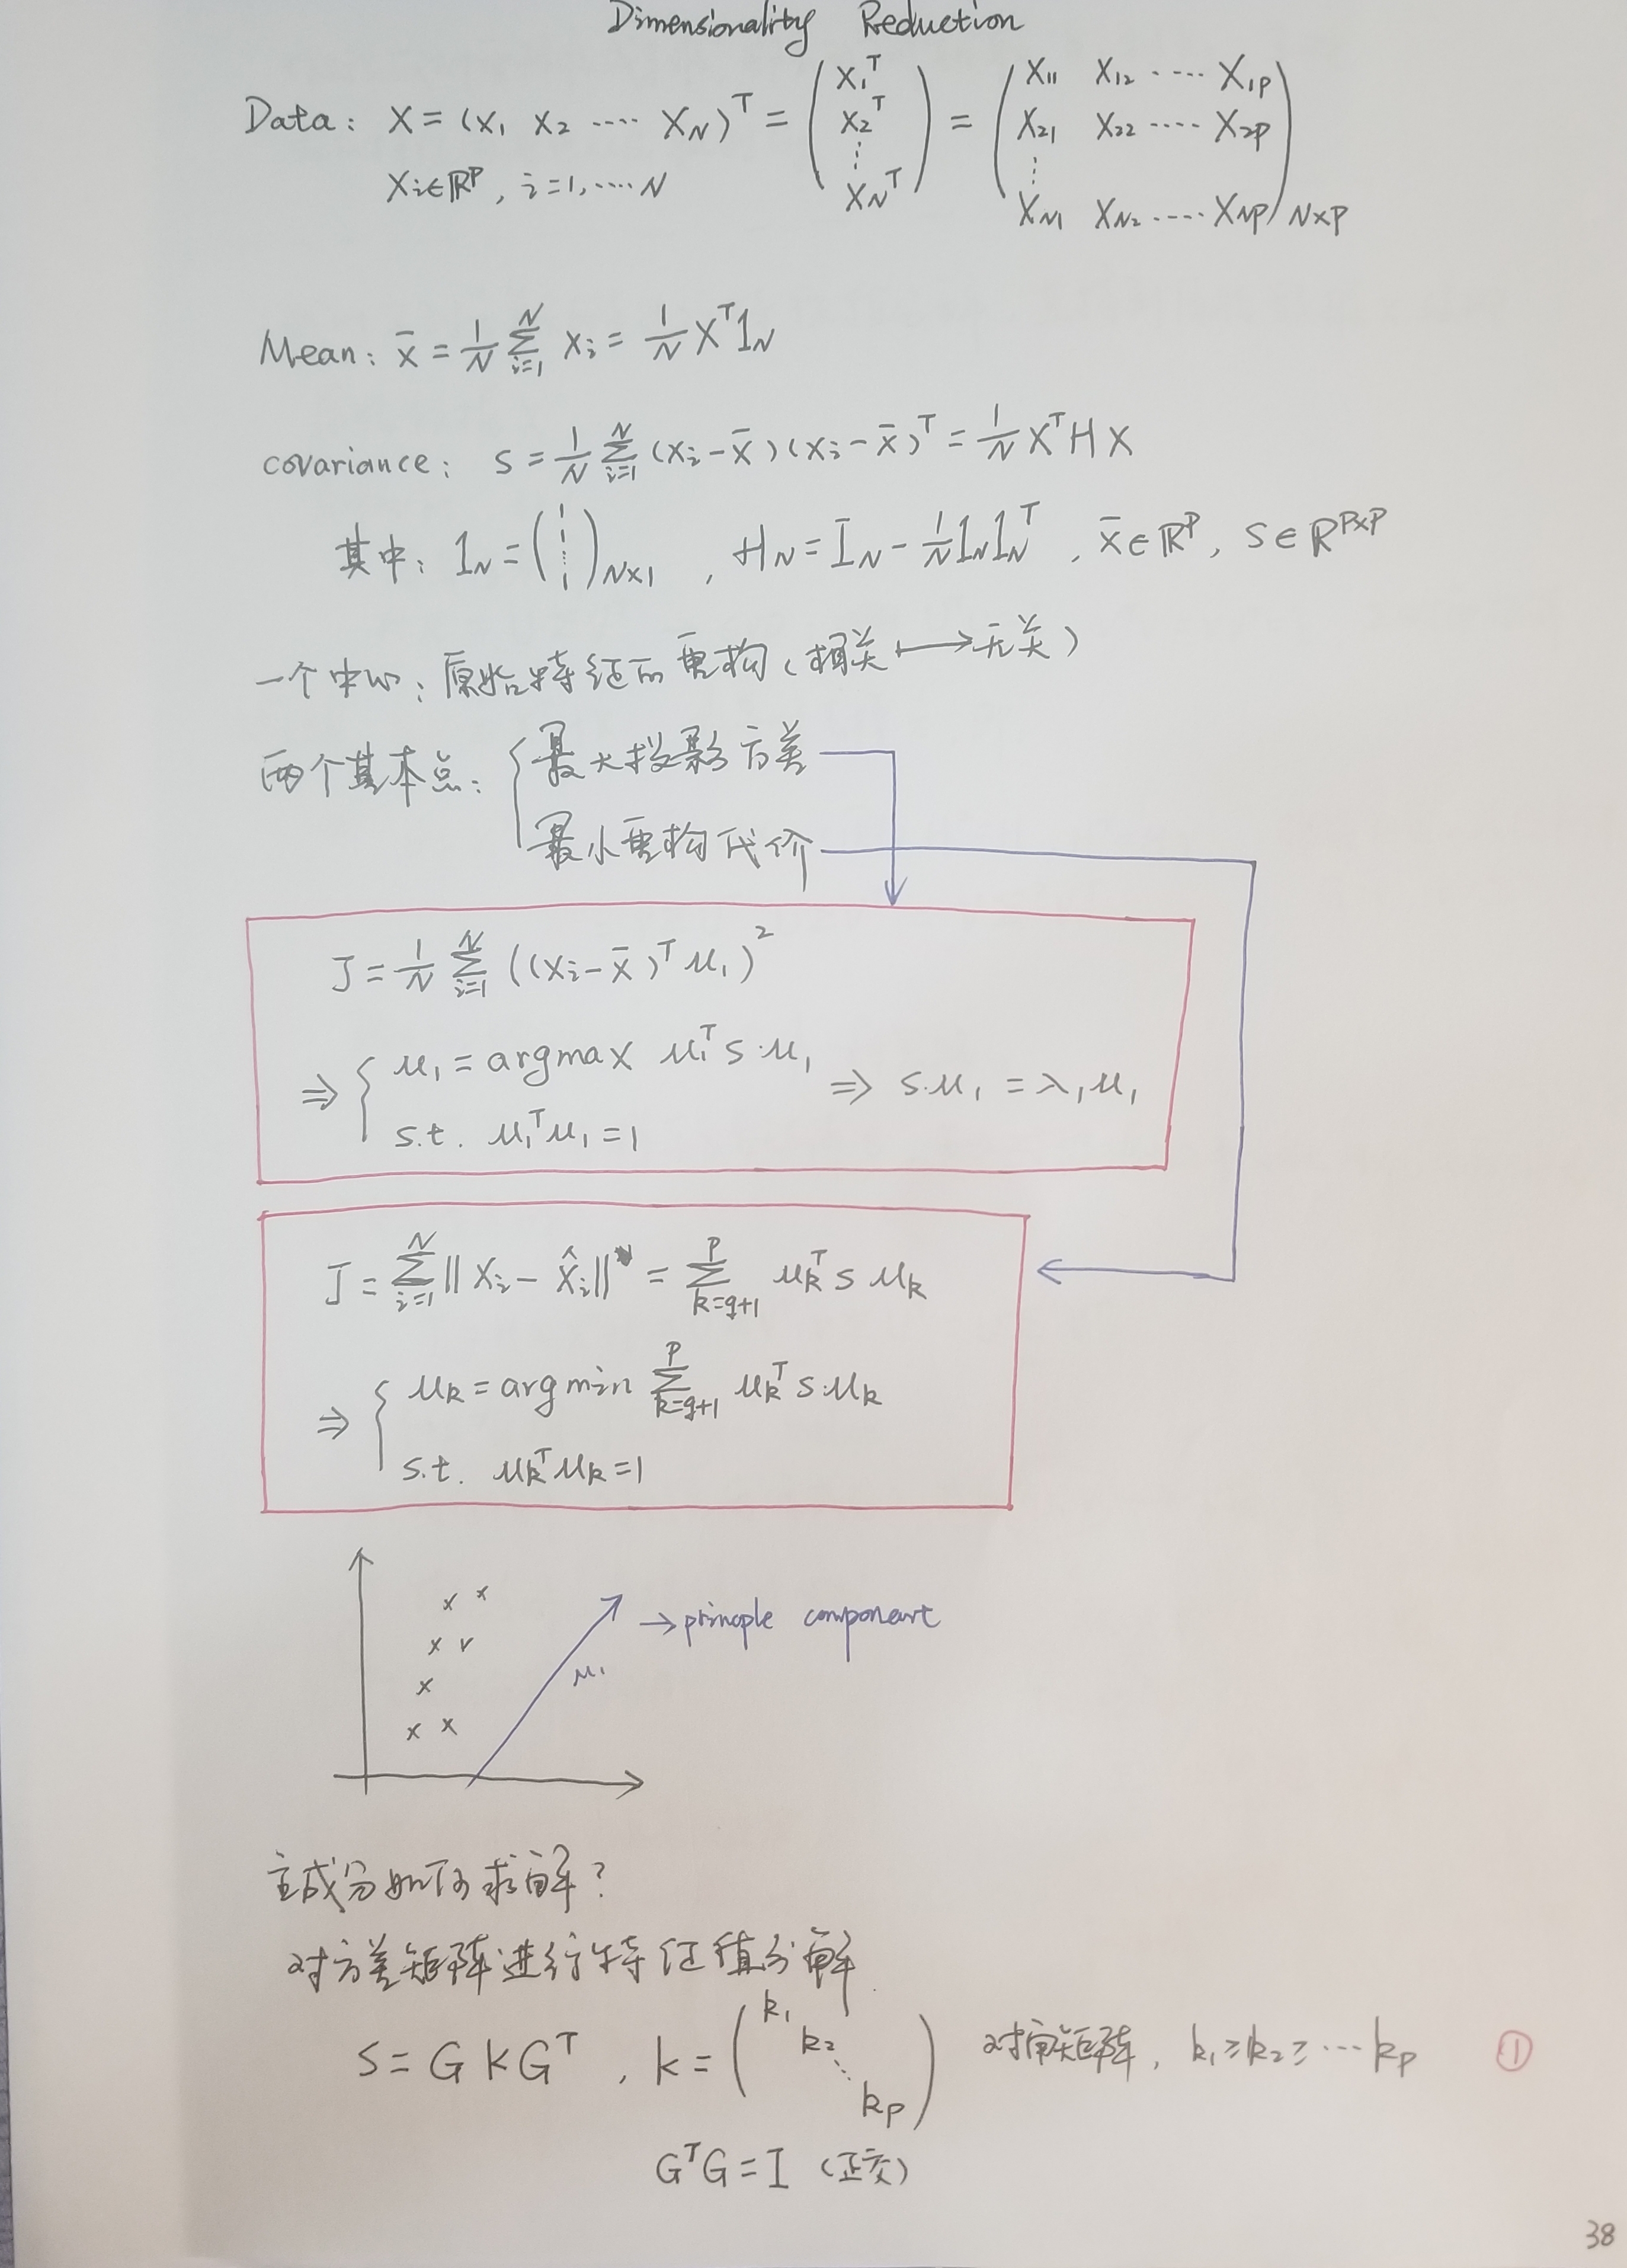 Dimensionality Reduction
Data: X = (x₁ x₂ ····· x_N)ᵀ = (x₁ᵀ x₂ᵀ ⋮ x_Nᵀ) = (x₁₁ x₁₂ ····· x₁p
x₂₁ x₂₂ ····· x₂p
⋮
x_N₁ x_N₂ ····· x_Np)_N×p
xᵢ∈ℝᵖ, i=1,····N
Mean: x̄ = 1/N ∑_{i=1}^{N} xᵢ = 1/N Xᵀ1_N
covariance: S = 1/N ∑_{i=1}^{N} (xᵢ-x̄)(xᵢ-x̄)ᵀ = 1/N XᵀHX
其中: 1_N = (1 ⋮ 1)_N×1, H_N = I_N - 1/N 1_N1_Nᵀ, x̄∈ℝᵖ, S∈ℝᵖˣᵖ
一个中心: 原始特征的重构(相关 ↦ 无关)
两个基本点: { 最大投影方差
最小重构代价
J = 1/N ∑_{i=1}^{N} ((xᵢ-x̄)ᵀμ₁)²
⇒ { μ₁ = argmax μ₁ᵀS·μ₁
s.t. μ₁ᵀμ₁=1
⇒ S·μ₁ = λ₁μ₁
J = ∑_{i=1}^{N} ‖xᵢ-x̂ᵢ‖ = ∑_{k=q+1}^{p} μ_kᵀSμ_k
⇒ { μ_k = argmin ∑_{k=q+1}^{p} μ_kᵀS·μ_k
s.t. μ_kᵀμ_k=1
x x
x v
x
x x
μ₁
→ principle component
主成分如何求解?
对方差矩阵进行特征值分解
S = GKGᵀ, k = (k₁ k₂ ⋱ k_p) 对角矩阵, k₁≥k₂≥···k_p ①
GᵀG = I (正交)
38